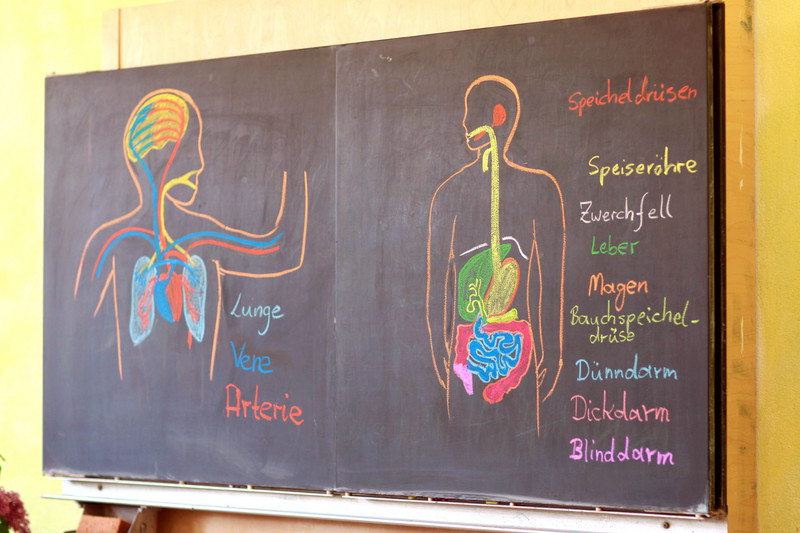 Lunge
Vene
Arterie
Speicheldrüsen
Speiseröhre
Zwerchfell
Leber
Magen
Bauchspeichel-
drüse
Dünndarm
Dickdarm
Blinddarm